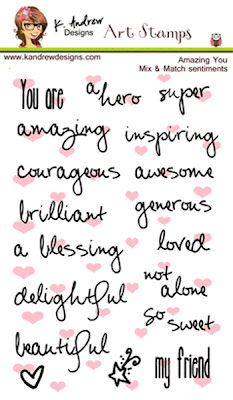 K. Andrew
Designs
Art Stamps
www.kandrewdesigns.com
Amazing You
Mix & Match sentiments
You are
a hero
super
amazing
inspiring
courageous
awesome
brilliant
generous
a blessing
loved
not alone
delightful
so sweet
beautiful
my friend